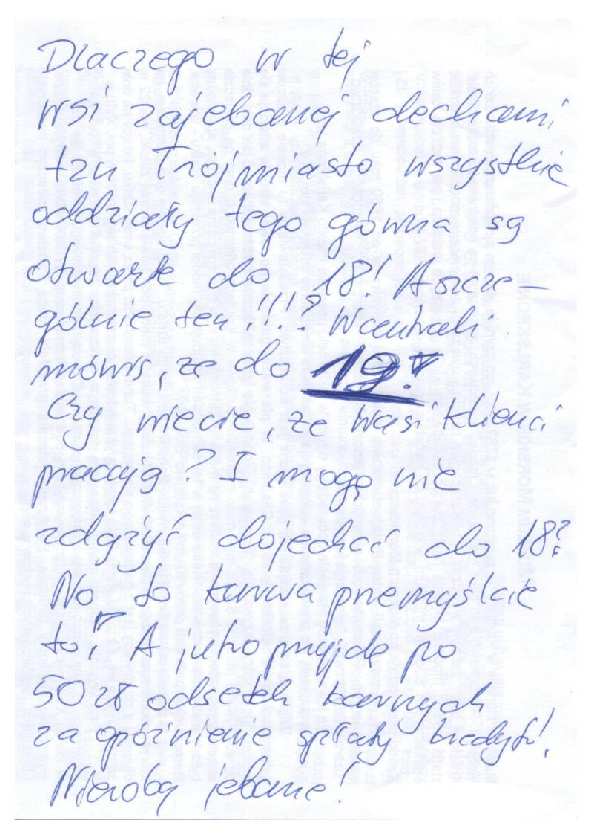 Dlaczego w tej
wsi zajebanej dechami
tzn Trójmiasto wszystkie
oddziały tego gówna są
otwarte do 18! A szcze-
gólnie ten!!!? W centrali
mówią, że do 19!
Czy wiecie, że wasi klienci
pracują? I mogą nie
zdążyć dojechać do 18?
No to kurwa przemyślcie
to! A jutro przyjdę po
50 zł odsetek karnych
za opóźnienie spłaty kredytu!
Nieroby jebane!